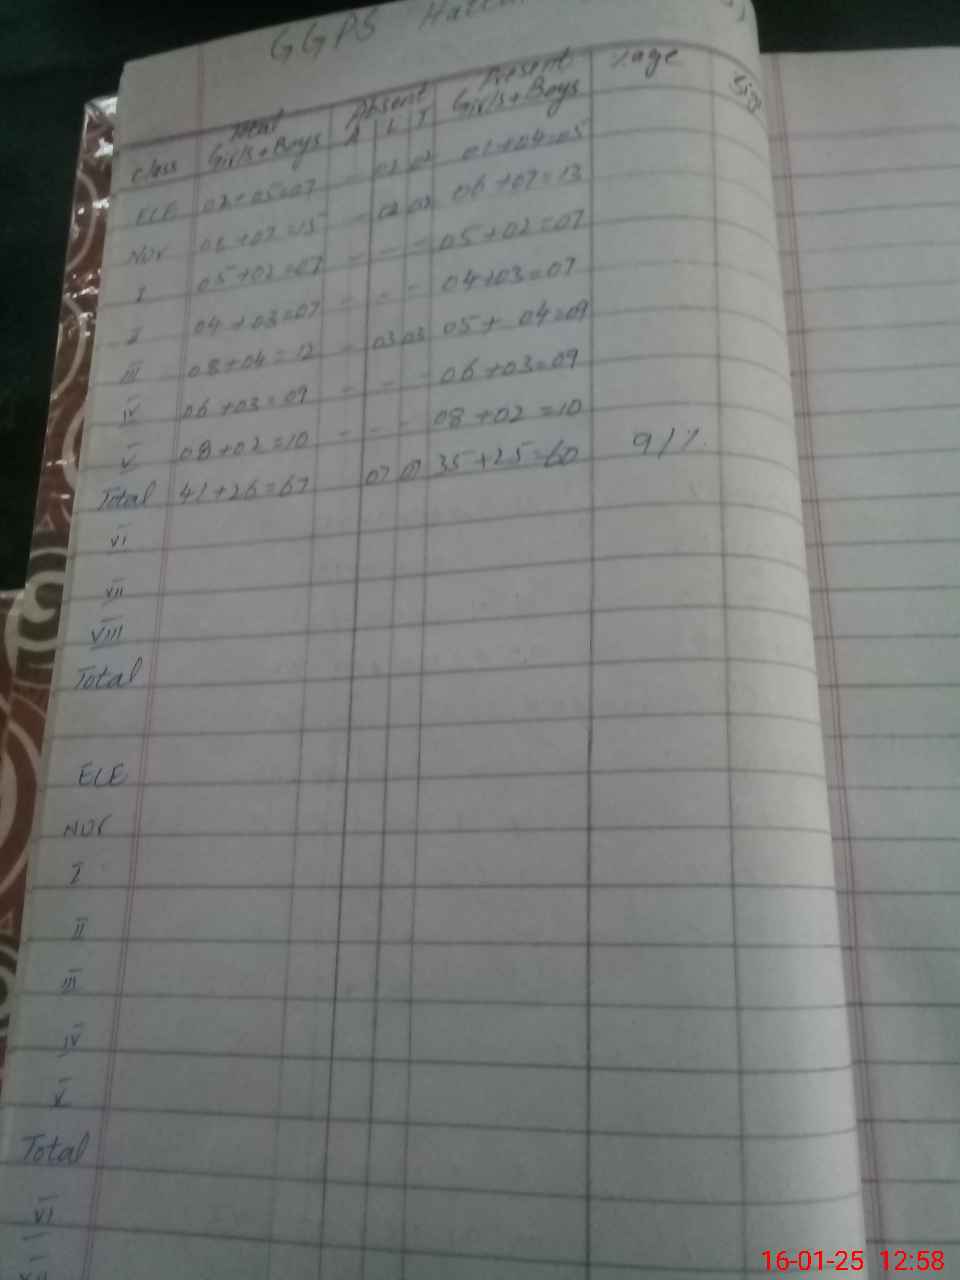 GGPS
Class Total Girls+Boys Absent A L T Present Girls+Boys %age Sig
ECE 02+05=07 - 02 02 01+04=05
Nur 07=15 - 02 02 06+07=13
I 05+02=07 - - - 05+02=07
II 04+03=07 - - - 04+03=07
III 08+04=12 - 03 03 05+04=09
IV 06+03=09 - - - 06+03=09
V 08+02=10 - - - 08+02=10
Total 41+26=67 07 07 35+25=60 91%
VI
VII
VIII
Total
ECE
Nur
I
II
III
IV
V
Total
VI
16-01-25 12:58